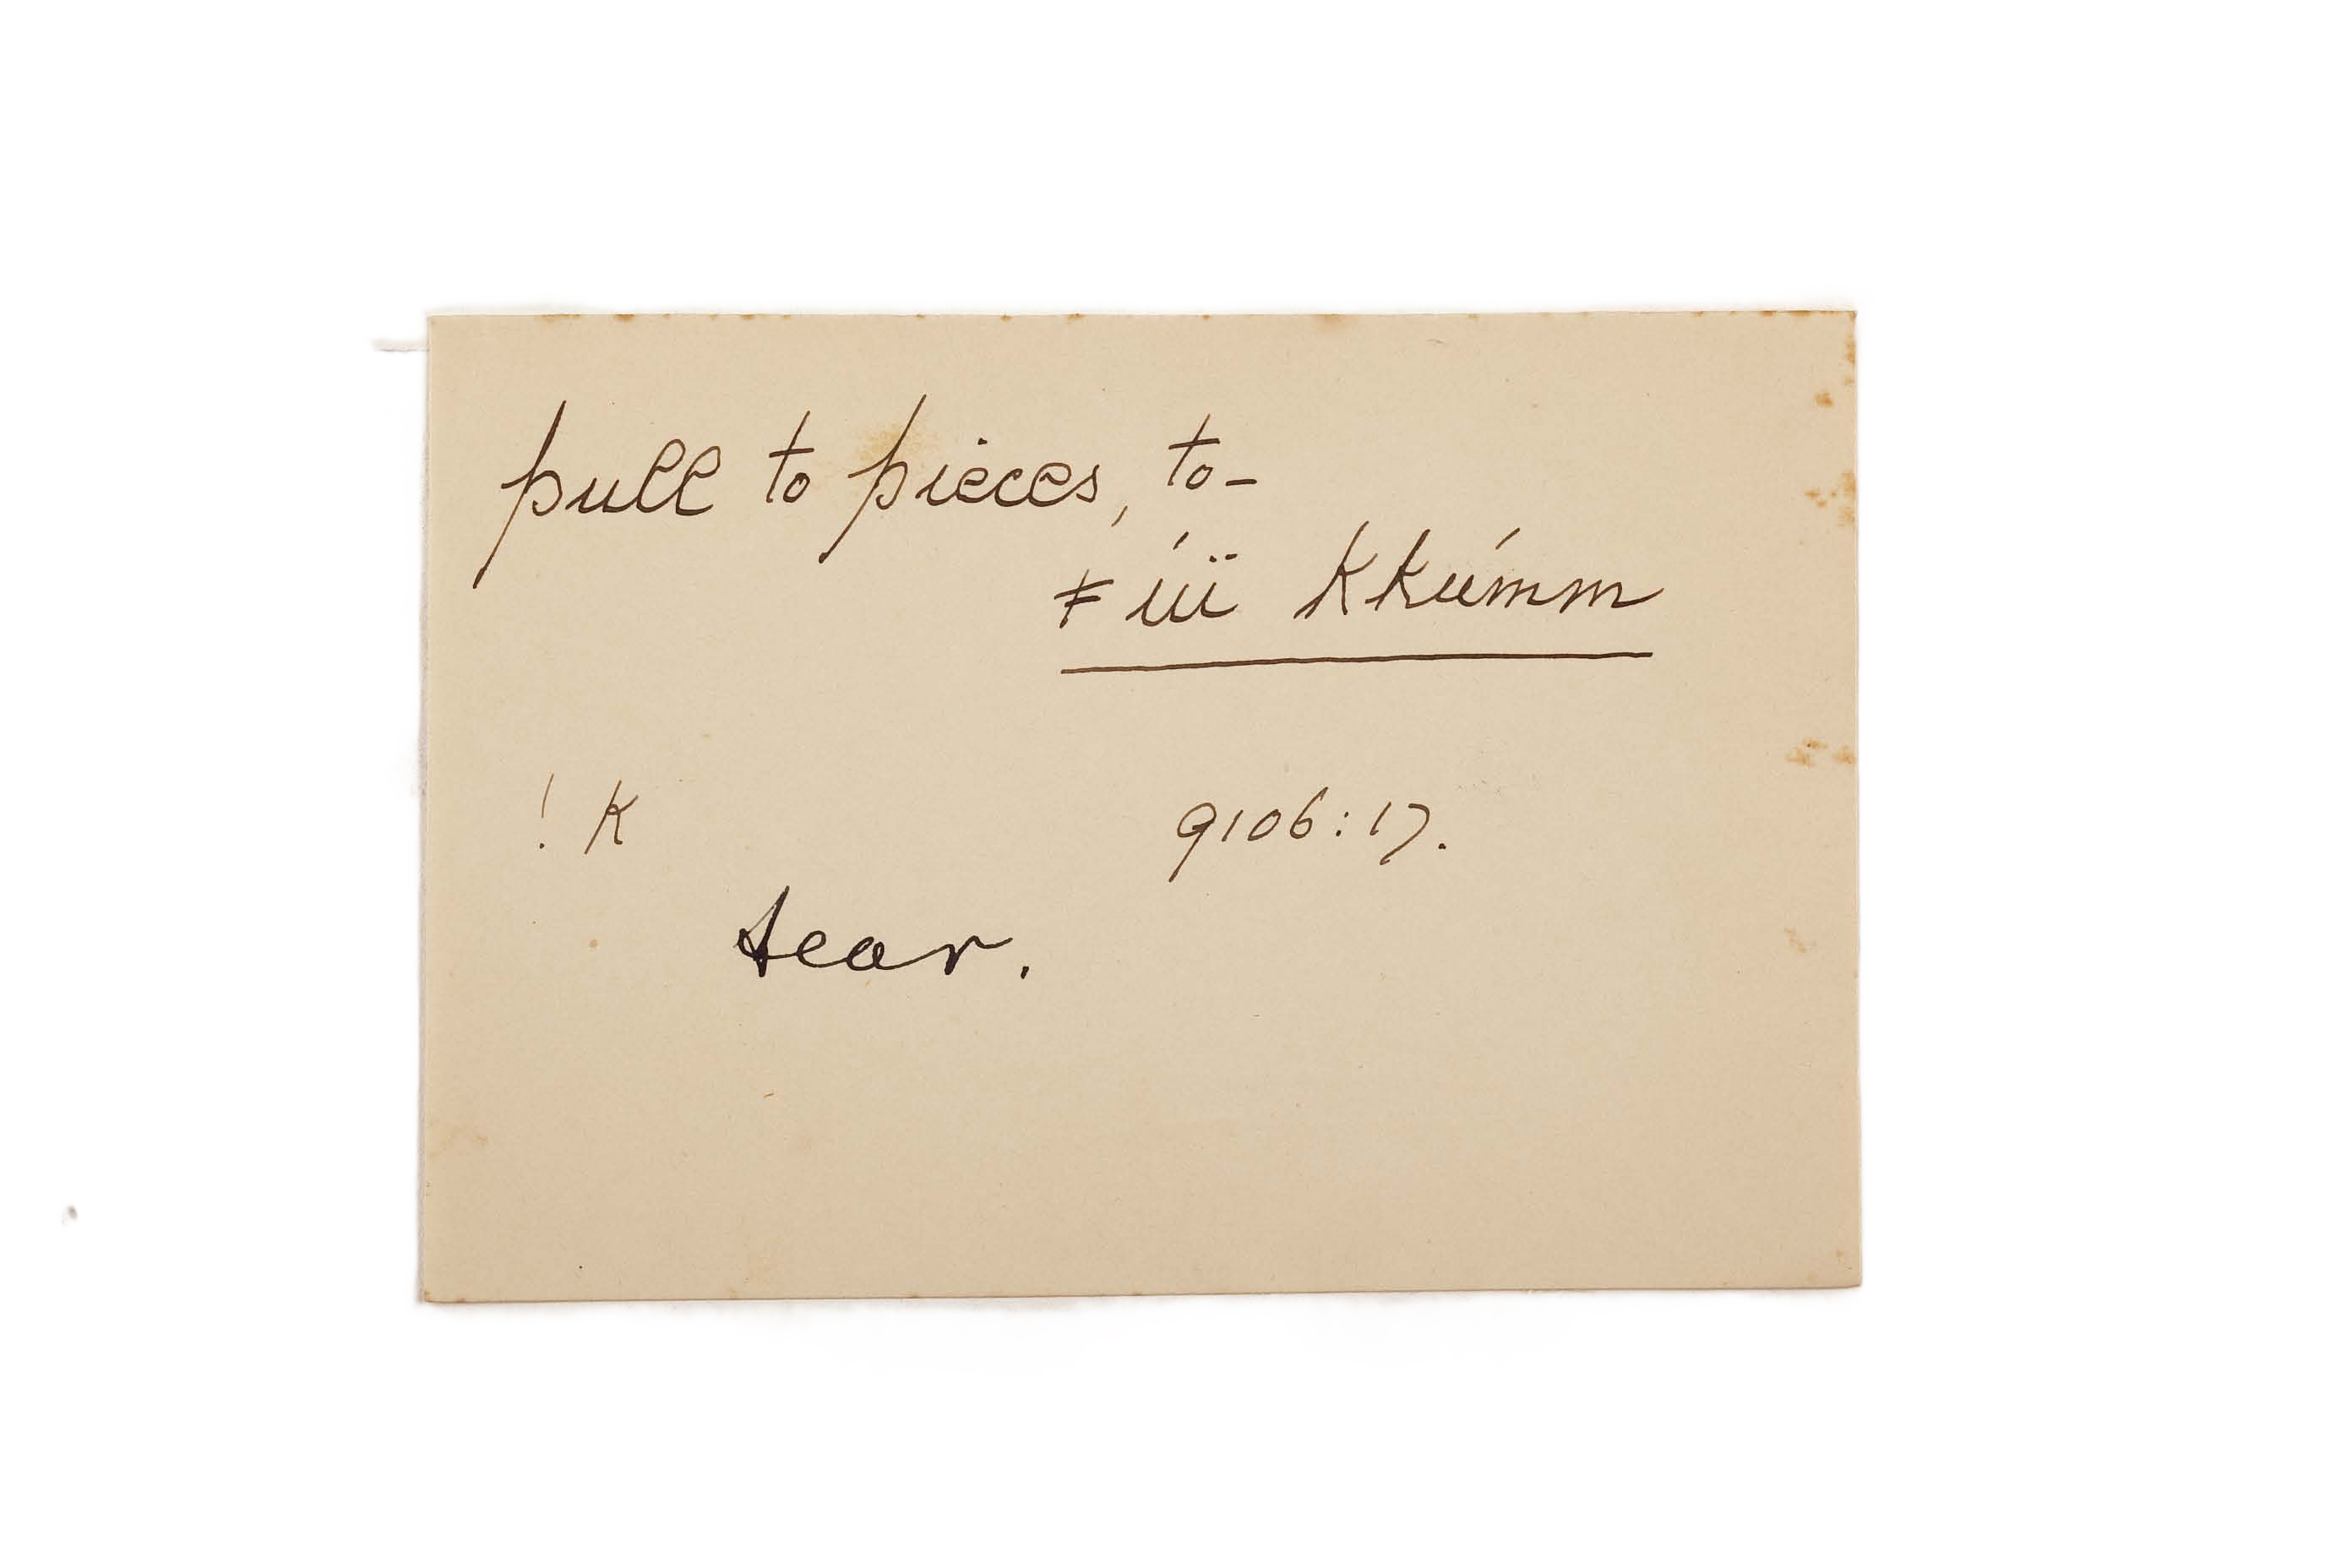 pull to pieces, to-
ǂ íï kkúmm
! K 9106:17.
tear.